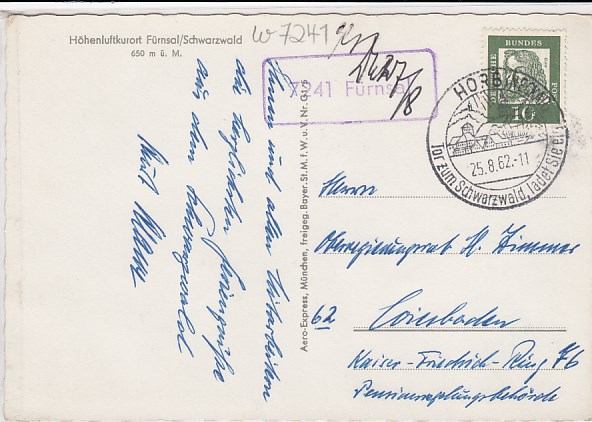 Höhenluftkurort Fürnsal/Schwarzwald
650 m ü. M.
W 7241
7241 Fürnsal
DEUTSCHE
BUNDES
POST
10
HORB
25.8.62.-11
Tor zum Schwarzwald, ladet Sie
Ihnen und allen Mitarbeitern
die herzlichsten Feriengrüße
aus dem Schwarzwald
Aero-Express, München, freigeg. Bayer. St. M. f. W. u. V. Nr. G1/5
Herrn
Oberregierungsrat H. Zimmer
62 Wiesbaden
Kaiser-Friedrich-Ring 76
Pensionsregelungsbehörde